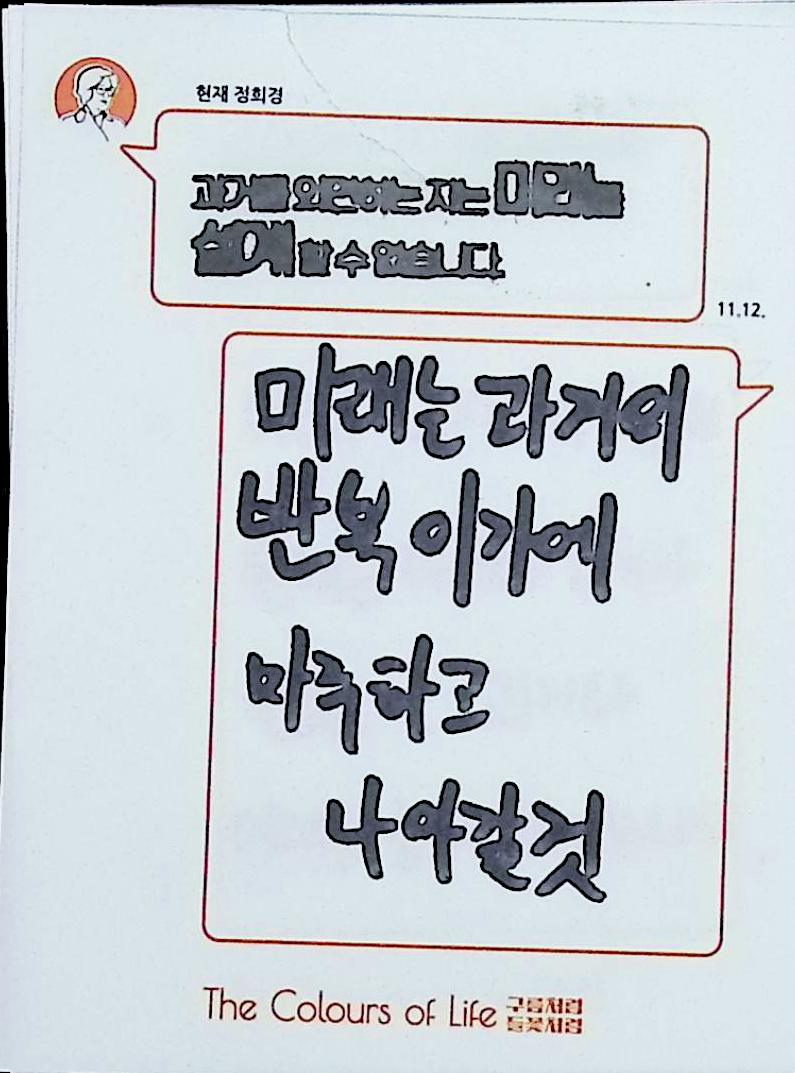 현재 정희경
과거를 외면하는 자는 미래를
설계 할 수 없습니다.
11.12.
미래는 과거의
반복 이기에
마주하고
나아갈 것
The Colours of Life 구름처럼
들꽃처럼